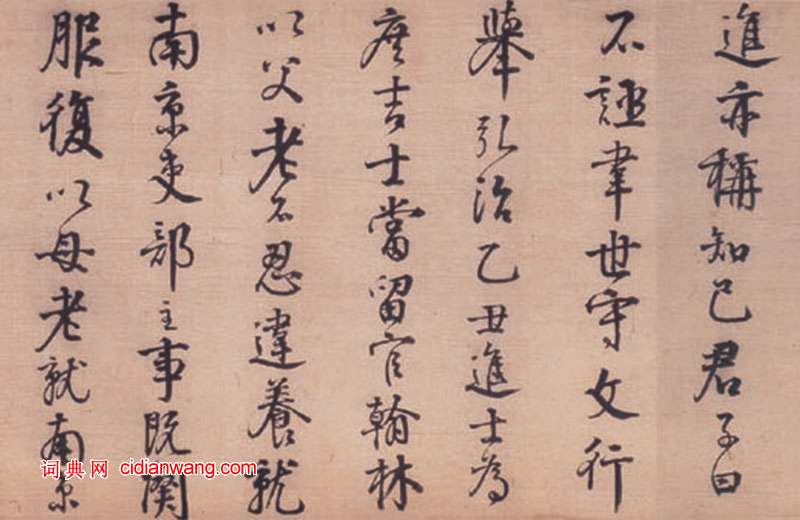 進亦稱知己君子曰
不誣韋世守文行
舉弘治乙丑進士為
庶吉士當留官翰林
以父老不忍違養就
南京吏部主事既闋
服復以母老就南京
词典网 cidianwang.com